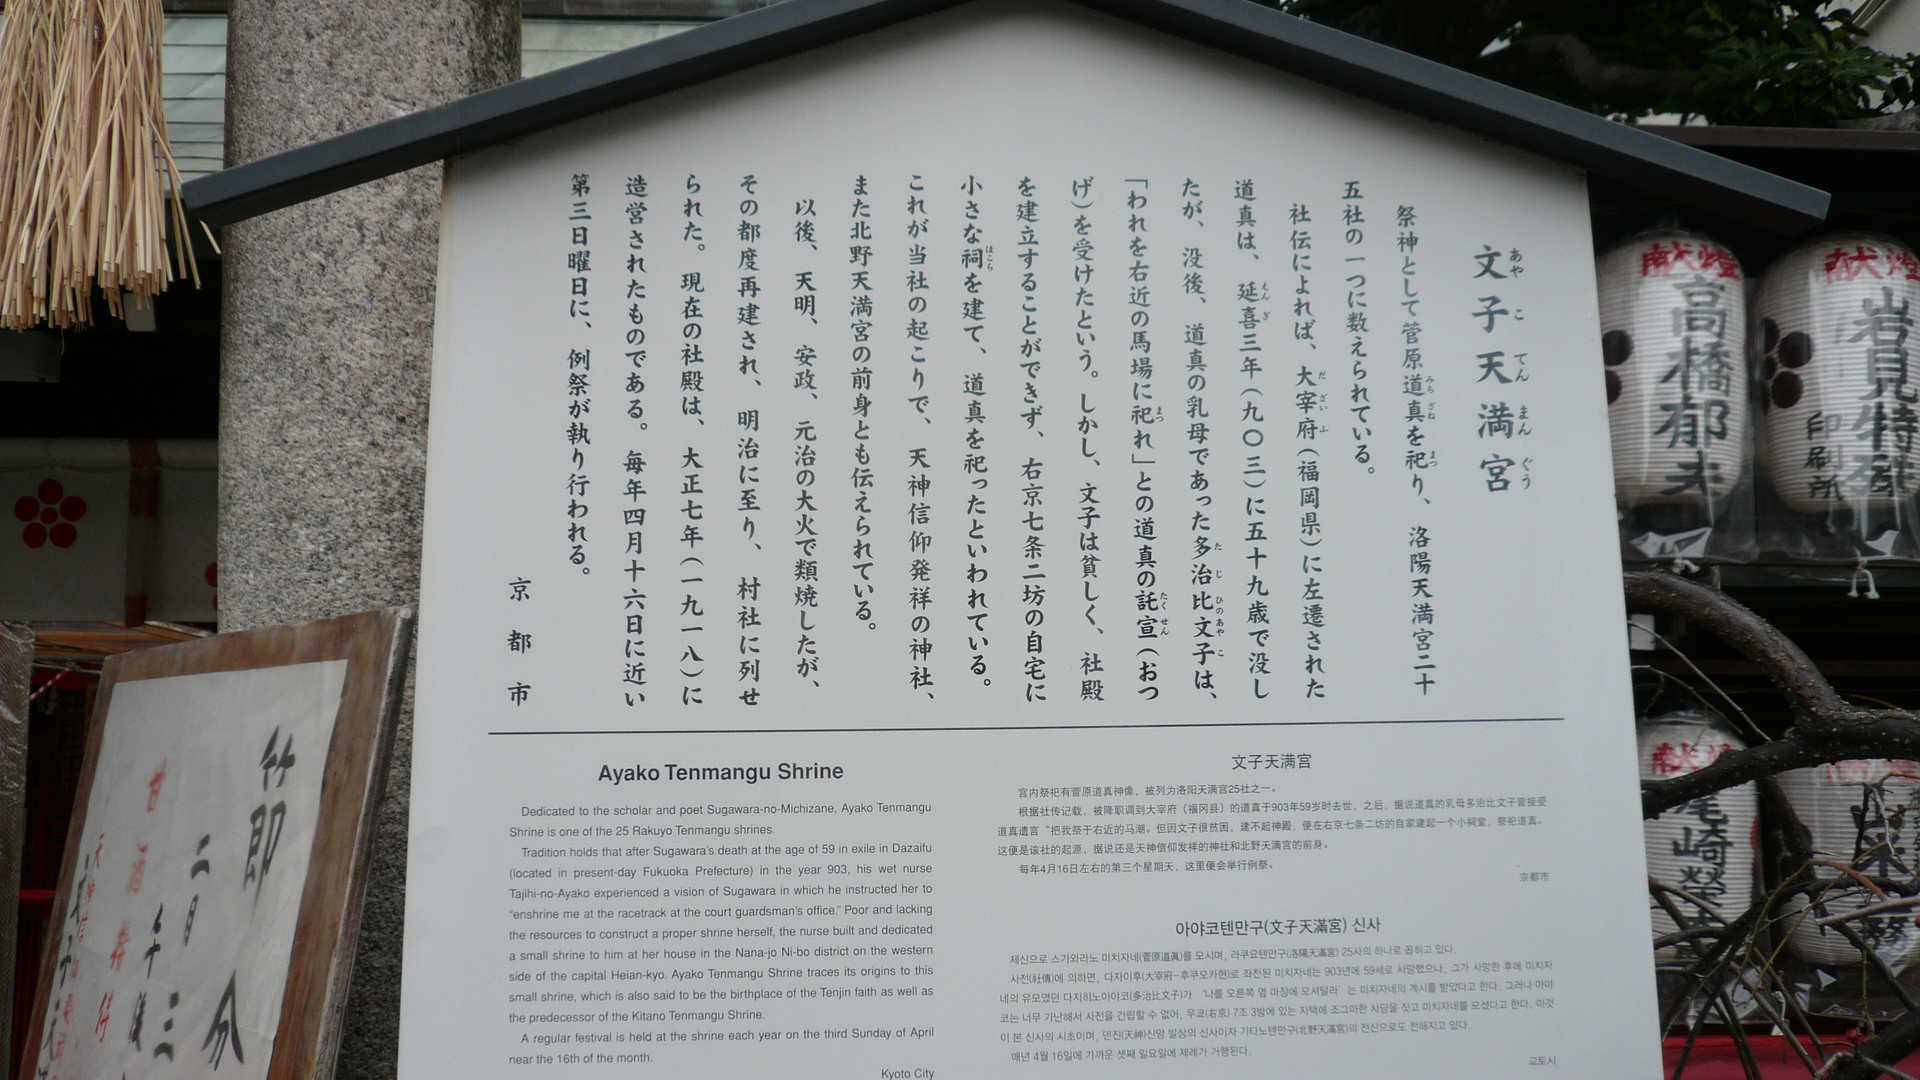 文子天満宮
祭神として菅原道真を祀り、洛陽天満宮二十
五社の一つに数えられている。
社伝によれば、大宰府（福岡県）に左遷された
道真は、延喜三年（九〇三）に五十九歳で没し
たが、没後、道真の乳母であった多治比文子は、
「われを右近の馬場に祀れ」との道真の託宣（おつ
げ）を受けたという。しかし、文子は貧しく、社殿
を建立することができず、右京七条二坊の自宅に
小さな祠を建て、道真を祀ったといわれている。
これが当社の起こりで、天神信仰発祥の神社、
また北野天満宮の前身とも伝えられている。
以後、天明、安政、元治の大火で類焼したが、
その都度再建され、明治に至り、村社に列せ
られた。現在の社殿は、大正七年（一九一八）に
造営されたものである。毎年四月十六日に近い
第三日曜日に、例祭が執り行われる。
京都市
Ayako Tenmangu Shrine
Dedicated to the scholar and poet Sugawara-no-Michizane, Ayako Tenmangu
Shrine is one of the 25 Rakuyo Tenmangu shrines.
Tradition holds that after Sugawara's death at the age of 59 in exile in Dazaifu
(located in present-day Fukuoka Prefecture) in the year 903, his wet nurse
Tajihi-no-Ayako experienced a vision of Sugawara in which he instructed her to
“enshrine me at the racetrack at the court guardsman's office.” Poor and lacking
the resources to construct a proper shrine herself, the nurse built and dedicated
a small shrine to him at her house in the Nana-jo Ni-bo district on the western
side of the capital Heian-kyo. Ayako Tenmangu Shrine traces its origins to this
small shrine, which is also said to be the birthplace of the Tenjin faith as well as
the predecessor of the Kitano Tenmangu Shrine.
A regular festival is held at the shrine each year on the third Sunday of April
near the 16th of the month.
Kyoto City
文子天满宫
宫内祭祀有菅原道真神像，被列为洛阳天满宫25社之一。
根据社传记载，被降职调到大宰府（福冈县）的道真于903年59岁时去世，之后，据说道真的乳母多治比文子曾接受
道真遗言“把我祭于右近的马潮。但因文子很贫困，建不起神殿，便在右京七条二坊的自家建起一个小祠堂，祭祀道真。
这便是该社的起源，据说还是天神信仰发祥的神社和北野天满宫的前身。
每年4月16日左右的第三个星期天，这里便会举行例祭。
京都市
아야코텐만구(文子天滿宮) 신사
제신으로 스가와라노 미치자네(菅原道眞)를 모시며, 라쿠요텐만구(洛陽天滿宮) 25사의 하나로 꼽히고 있다.
사전(社傳)에 의하면, 다자이후(大宰府-후쿠오카현)로 좌천된 미치자네는 903년에 59세로 사망했으나, 그가 사망한 후에 미치자
네의 유모였던 다지히노아야코(多治比文子)가 ‘나를 오른쪽 옆 마장에 모셔달라’는 미치자네의 계시를 받았다고 한다. 그러나 아야
코는 너무 가난해서 사전을 건립할 수 없어, 우쿄(右京) 7조 3방에 있는 자택에 조그마한 사당을 짓고 미치자네를 모셨다고 한다. 이것
이 본 신사의 시초이며, 덴진(天神)신앙 발상의 신사이자 기타노텐만구(北野天滿宮)의 전신으로도 전해지고 있다.
매년 4월 16일에 가까운 셋째 일요일에 제례가 거행된다.
교토시
節分
二月
三
甘酒
献燈
高橋郁夫
献燈
岩見特殊
印刷所
献燈
尾崎榮